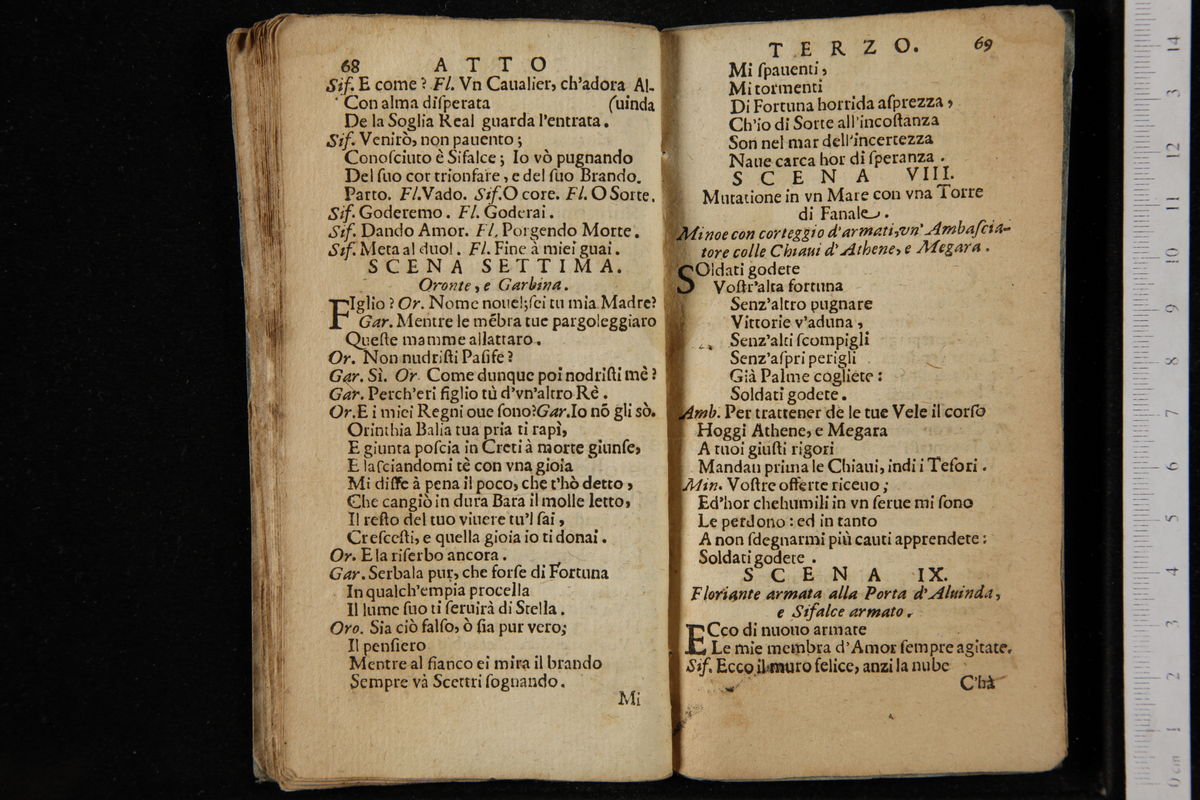 68 ATTO
Sif. E come? Fl. Vn Caualier, ch'adora Al-
Con alma diſperata (uinda
De la Soglia Real guarda l'entrata.
Sif. Venirò, non pauento;
Conoſciuto è Sifalce; Io vò pugnando
Del ſuo cor trionfare, e del ſuo Brando.
Parto. Fl. Vado. Sif. O core. Fl. O Sorte.
Sif. Goderemo. Fl. Goderai.
Sif. Dando Amor. Fl. Porgendo Morte.
Sif. Meta al duol. Fl. Fine à miei guai.
SCENA SETTIMA.
Oronte, e Garbina.
FIglio? Or. Nome nouel; ſei tu mia Madre?
Gar. Mentre le mẽbra tue pargoleggiaro
Queſte mamme allattaro.
Or. Non nudriſti Paſife?
Gar. Sì. Or. Come dunque poi nodriſti mè?
Gar. Perch'eri figlio tù d'vn'altro Rè.
Or. E i miei Regni oue ſono? Gar. Io nõ gli sò.
Orinthia Balia tua pria ti rapì,
E giunta poſcia in Creti à morte giunſe,
E laſciandomi tè con vna gioia
Mi diſſe à pena il poco, che t'hò detto,
Che cangiò in dura Bara il molle letto,
Il reſto del tuo viuere tu'l ſai,
Creſceſti, e quella gioia io ti donai.
Or. E la riſerbo ancora.
Gar. Serbala pur, che forſe di Fortuna
In qualch'empia procella
Il lume ſuo ti ſeruirà di Stella.
Oro. Sia ciò falſo, ò ſia pur vero;
Il penſiero
Mentre al fianco ei mira il brando
Sempre và Scettri ſognando.
Mi
TERZO. 69
Mi ſpauenti,
Mi tormenti
Di Fortuna horrida aſprezza,
Ch'io di Sorte all'incoſtanza
Son nel mar dell'incertezza
Naue carca hor di ſperanza.
SCENA VIII.
Mutatione in vn Mare con vna Torre
di Fanale.
Minoe con corteggio d'armati, vn' Ambaſcia-
tore colle Chiaui d'Athene, e Megara.
SOldati godete
Voſtr'alta fortuna
Senz'altro pugnare
Vittorie v'aduna,
Senz'alti ſcompigli
Senz'aſpri perigli
Già Palme cogliete:
Soldati godete.
Amb. Per trattener de le tue Vele il corſo
Hoggi Athene, e Megara
A tuoi giuſti rigori
Mandan prima le Chiaui, indi i Teſori.
Min. Voſtre offerte riceuo;
Ed'hor chehumili in vn ſerue mi ſono
Le perdono: ed in tanto
A non ſdegnarmi più cauti apprendete:
Soldati godete.
SCENA IX.
Floriante armata alla Porta d'Aluinda,
e Sifalce armato.
ECco di nuouo armate
Le mie membra d'Amor ſempre agitate.
Sif. Ecco il muro felice, anzi la nube
C'hà
14
13
12
11
10
9
8
7
6
5
4
3
2
1
0 cm